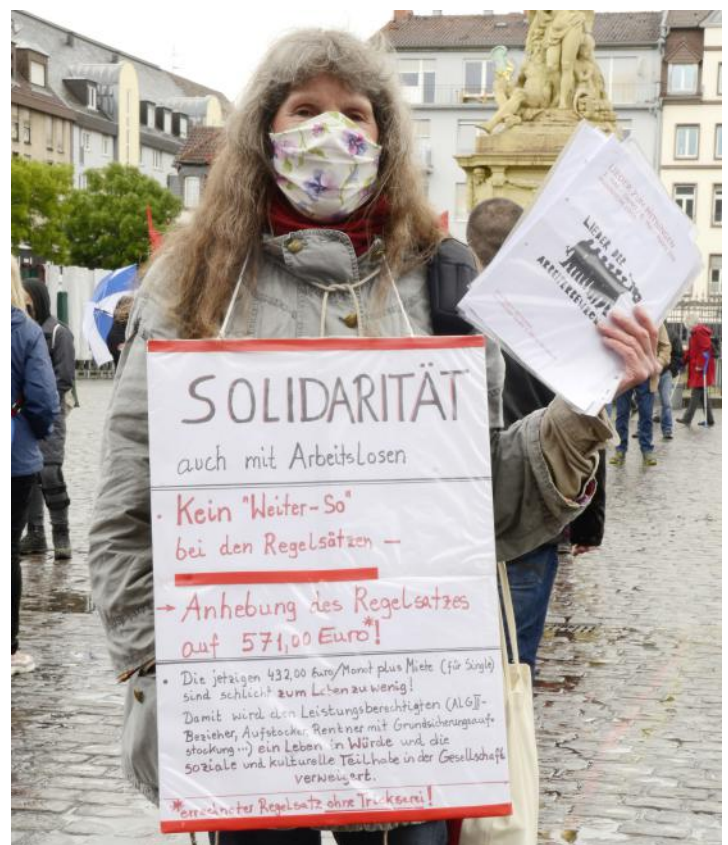 SOLIDARITÄT
auch mit Arbeitslosen
· Kein "Weiter-So"
bei den Regelsätzen –
→ Anhebung des Regelsatzes
auf 571,00 Euro*!
• Die jetzigen 432,00 Euro/Monat plus Miete (für Single)
sind schlicht zum Leben zu wenig!
Damit wird den Leistungsberechtigten (ALGII-
Bezieher, Aufstocker, Rentner mit Grundsicherungsauf-
stockung...) ein Leben in Würde und die
soziale und kulturelle Teilhabe in der Gesellschaft
verweigert.
*errechneter Regelsatz ohne Trickserei!
LIEDER ZUM MITSINGEN
LIEDER DER
ARBEITERBEWEGUNG